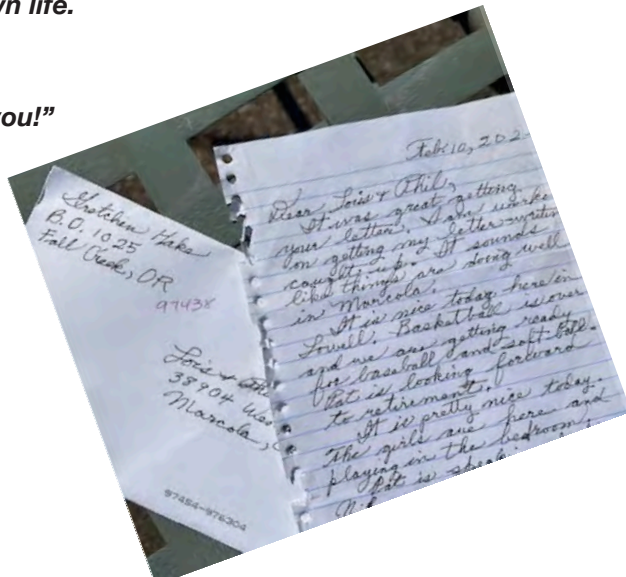 wn life.
you!”
Gretchen Hake
B.O. 1025
Fall Creek, OR
97438
Lois &
38904
Marcola,
97454-976304
Feb 10, 202
Dear Lois & Phil,
It was great getting
your letter. I am workin
on getting my letter-writin
caught up. It sounds
like things are doing well
in Marcola.
It is nice today here in
Lowell. Basketball is over
and we are getting ready
for baseball and soft ball.
Pat is looking forward
to retirement.
It is pretty nice today.
The girls are here and
playing in the bedroom.
Pat is